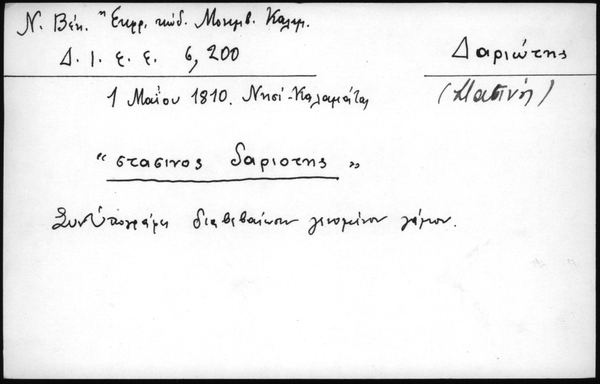 Ν. Βέη. "Εκφρ. κώδ. Μονεμβ. Καλαμ.
Δ. Ι. Ε. Ε. 6, 200
Δαριώτης
1 Μαΐου 1810. Νησί-Καλαμάτας
"στασινος δαριοτης"
Συνυπογράφει διαβεβαίωσιν γενομένου γάμου.